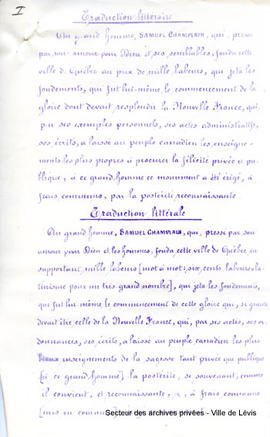 I
Traduction littéraire
Un grand homme, SAMUEL CHAMPLAIN, qui, pressé
par son amour pour Dieu et ses semblables, fonda cette
ville de Québec au prix de mille labeurs, qui jeta les
fondements, qui fut lui-même le commencement de la
gloire dont devait resplendir la Nouvelle France, qui,
par ses exemples personnels, ses actes administratifs,
ses écrits, a laissé au peuple canadien les enseigne-
ments les plus propres à procurer la félicité privée et pu-
blique, à ce grand homme ce monument a été érigé, à
frais communs, par la postérité reconnaissante
Traduction littérale
Un grand homme, SAMUEL CHAMPLAIN, qui, pressé par son
amour pour Dieu et les hommes, fonda cette ville de Québec en
supportant mille labeurs [mot à mot, six cents labeurs, la-
tinisme pour un très grand nombre], qui jeta les fondements,
qui fut lui même le commencement de cette gloire qui, si grande
devait être celle de la Nouvelle France, qui, par ses actes, ses or-
donnances, ses écrits, a laissé au peuple canadien les plus
enseignements de la sagesse tant privée que publique
à ce grand homme] la postérité, se souvenant, comme
il convient, et reconnaissante, à frais communs
[mis en commun]
Secteur des archives privées - Ville de Lévis